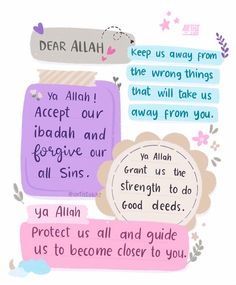 DEAR ALLAH
Keep us away from
the wrong things
that will take us
away from you.
ya Allah!
Accept our
ibadah and
forgive our
all Sins.
ya Allah
Grant us the
strength to do
Good deeds.
ya Allah
Protect us all and guide
us to become closer to you.